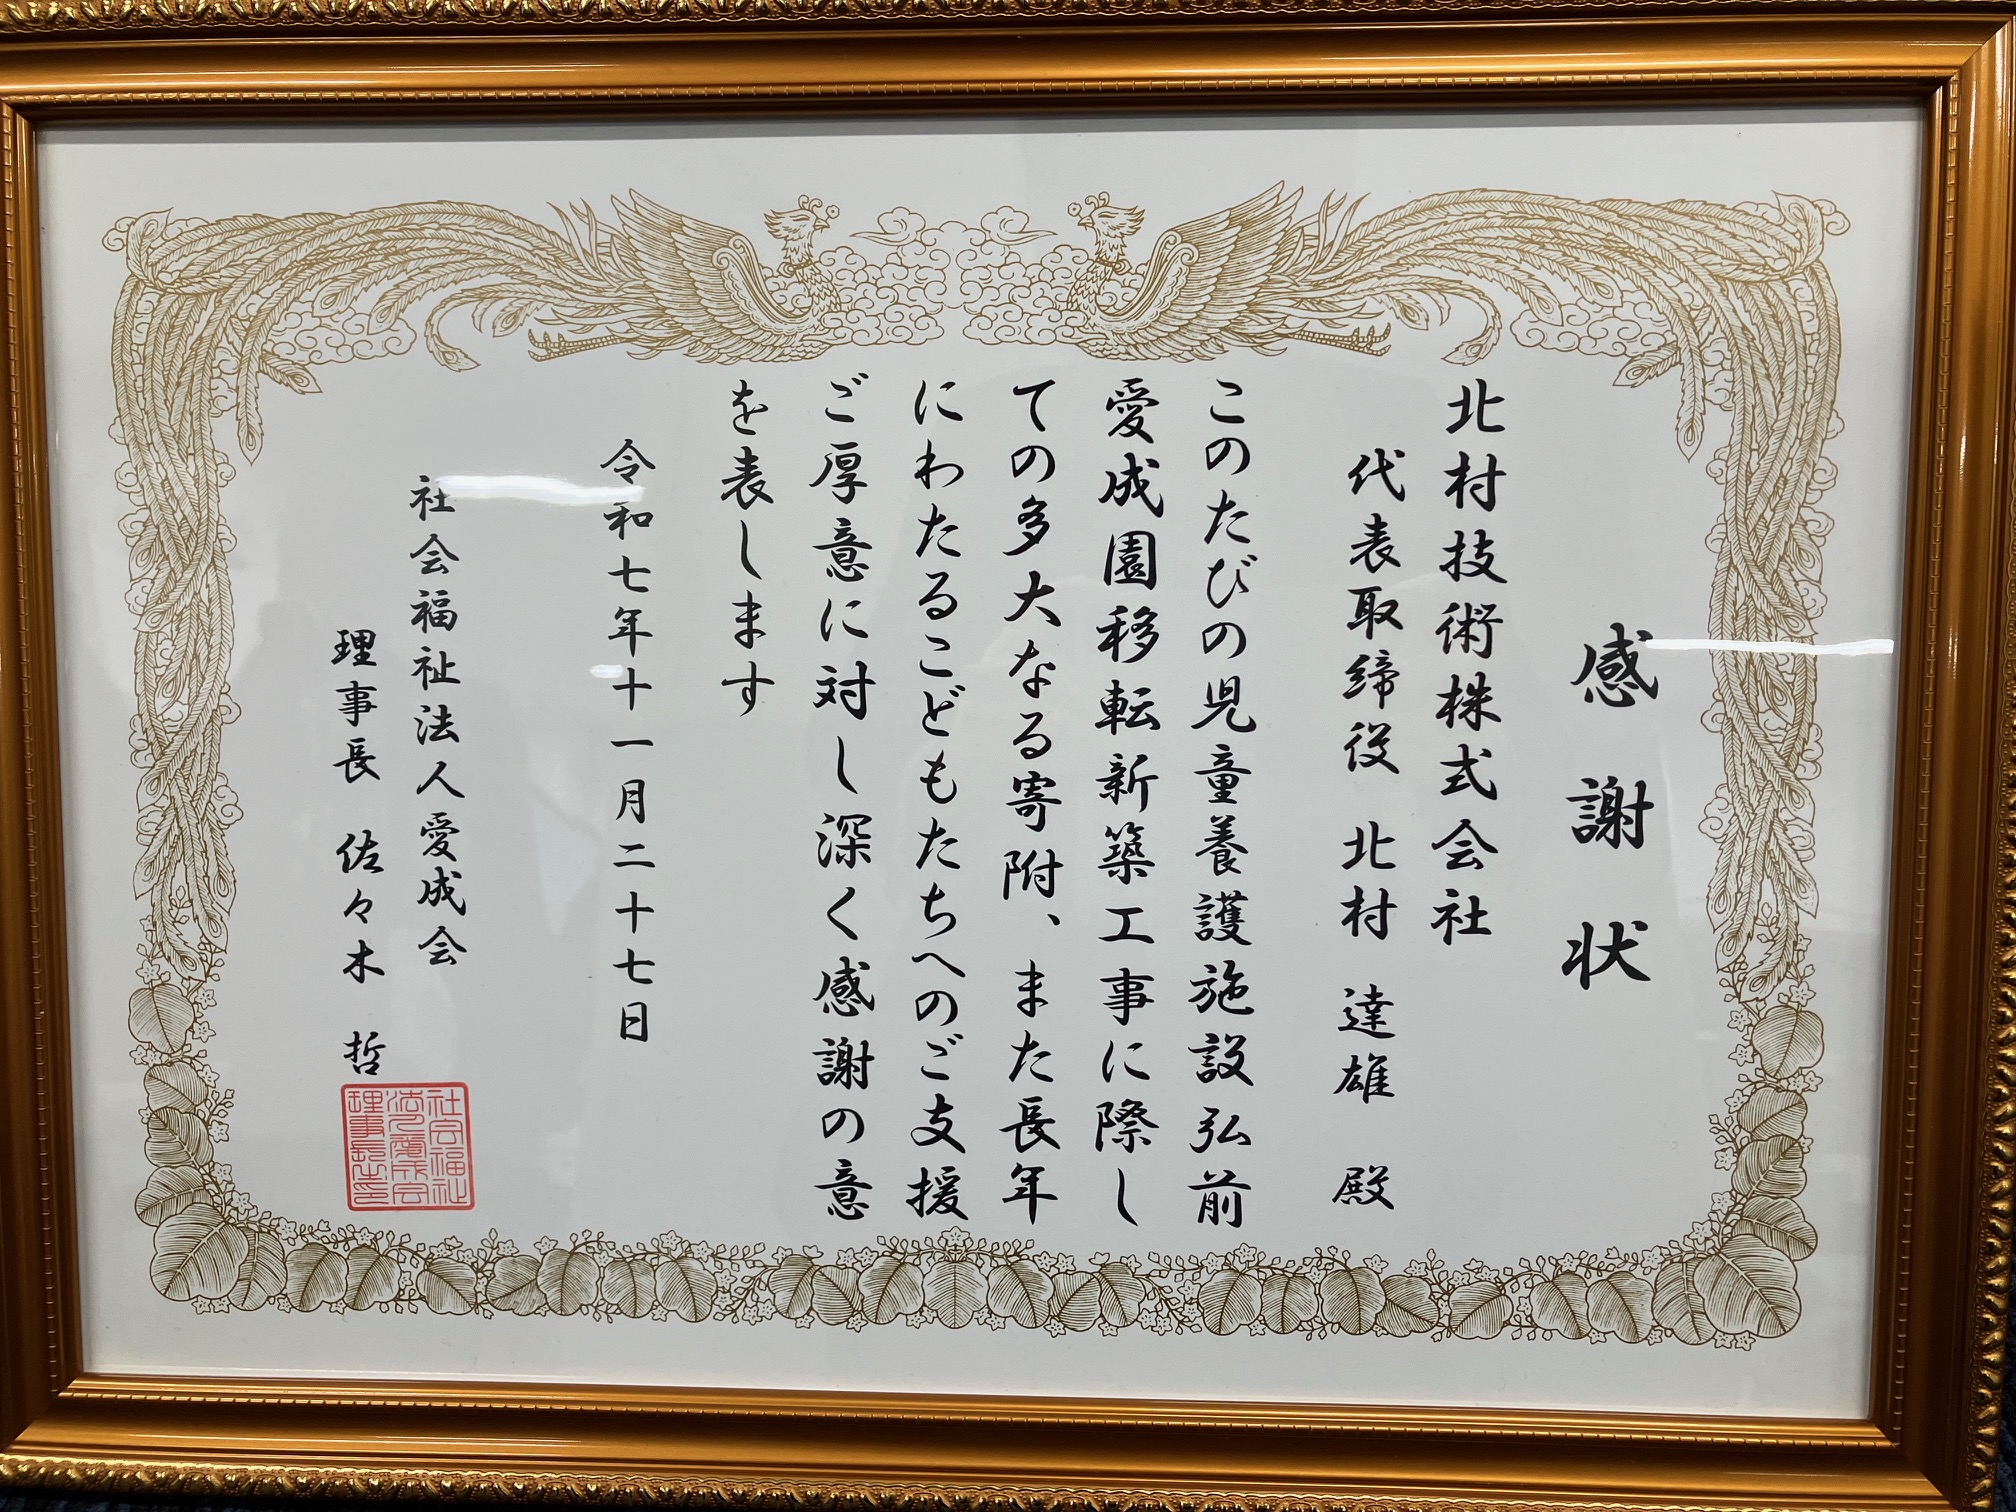 感謝状
北村技術株式会社
代表取締役 北村 達雄 殿
このたびの児童養護施設弘前
愛成園移転新築工事に際し
ての多大なる寄附、また長年
にわたるこどもたちへのご支援
ご厚意に対し深く感謝の意
を表します
令和七年十一月二十七日
社会福祉法人愛成会
理事長 佐々木 哲
社会福祉
法人愛成会
理事長之印